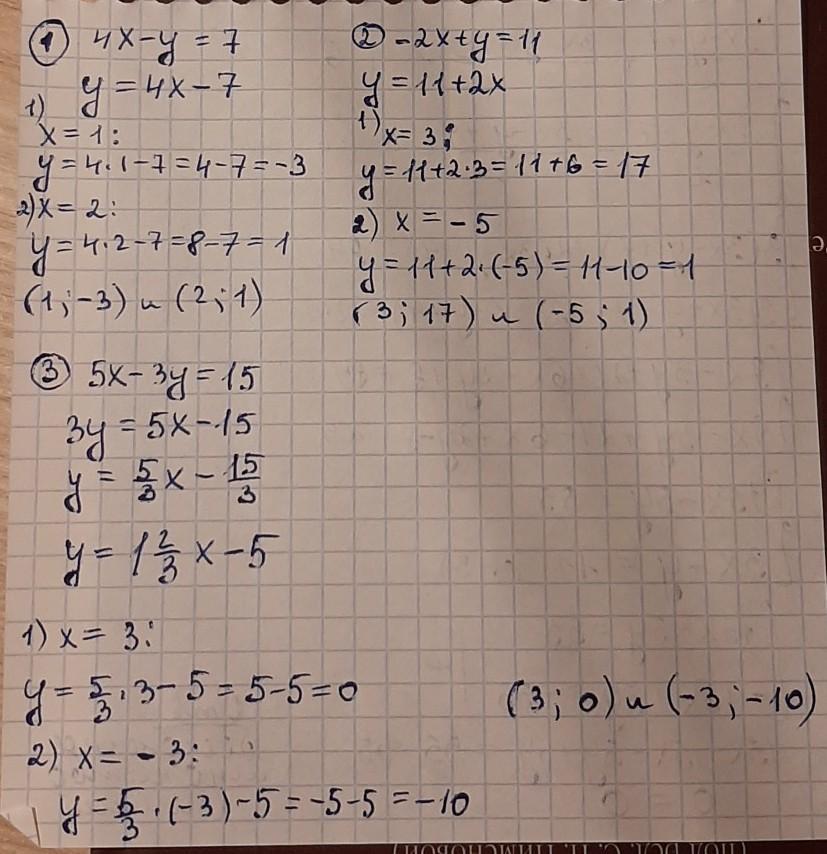 ① 4x-y=7
y=4x-7
1)
x=1:
y=4·1-7=4-7=-3
2) x=2:
y=4·2-7=8-7=1
(1;-3) и (2;1)
② -2x+y=11
y=11+2x
1) x=3;
y=11+2·3=11+6=17
2) x=-5
y=11+2·(-5)=11-10=1
(3;17) и (-5;1)
③ 5x-3y=15
3y=5x-15
y=5/3x-15/3
y=1 2/3 x-5
1) x=3:
y=5/3·3-5=5-5=0
(3;0) и (-3;-10)
2) x=-3:
y=5/3·(-3)-5=-5-5=-10